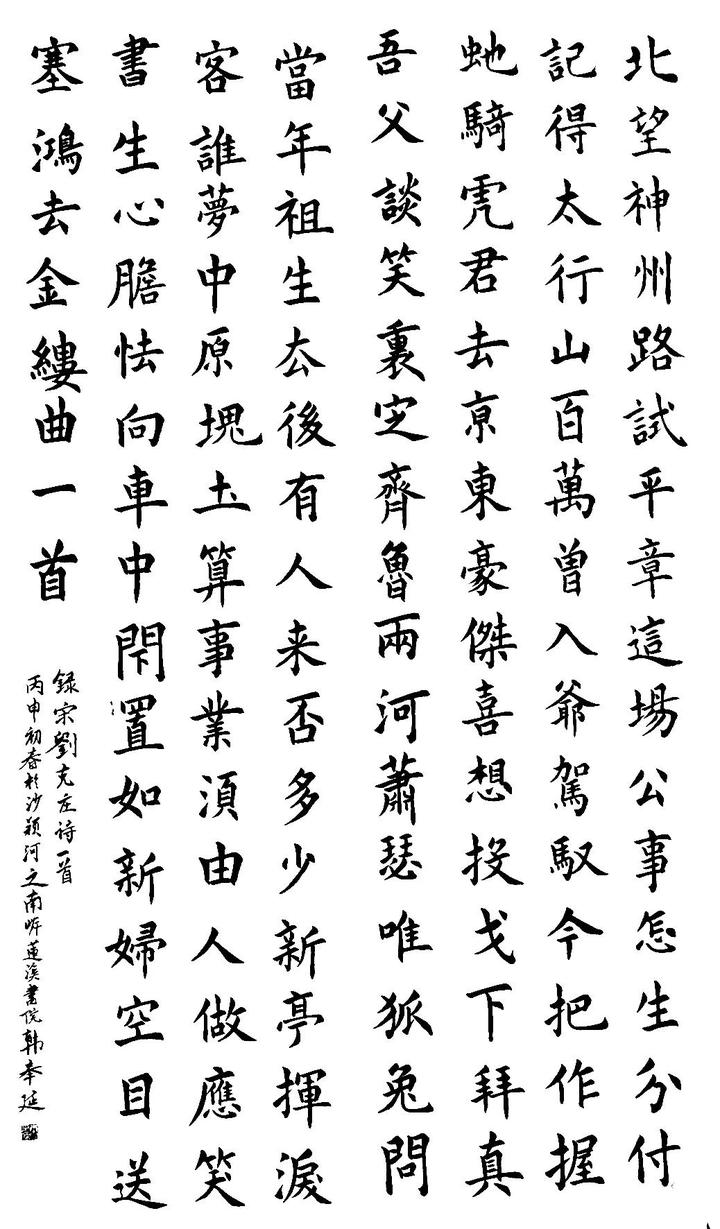 北望神州路試平章這場公事怎生分付
記得太行山百萬曾入爺駕馭今把作握
虵騎虎君去京東豪傑喜想投戈下拜真
吾父談笑裏定齊魯兩河蕭瑟唯狐兔問
當年祖生去後有人来否多少新亭揮淚
客誰夢中原塊土算事業須由人做應笑
書生心膽怯向車中閉置如新婦空目送
塞鴻去金縷曲一首
録宋劉克庄诗一首
丙申初春於沙颍河之南岸蓮溪書院韩奉延